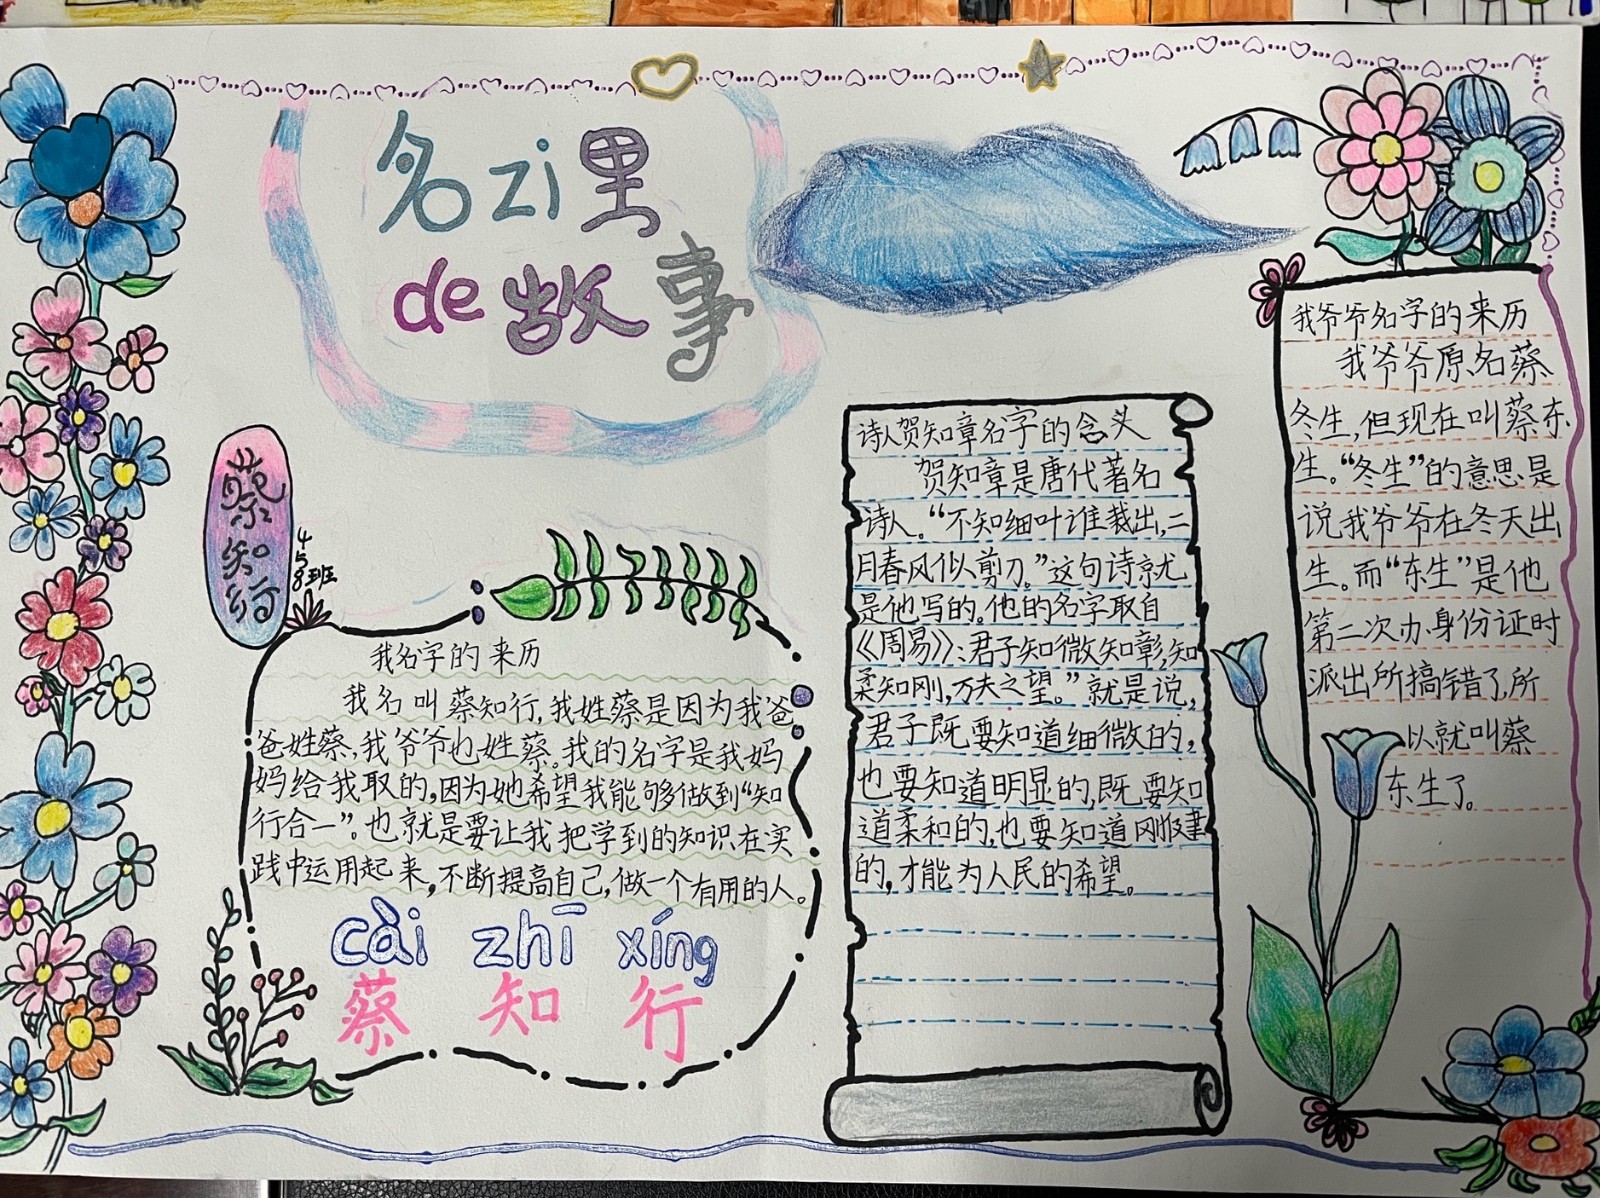 名zi里
de故事
蔡知行
458班
我名字的来历
我名叫蔡知行,我姓蔡是因为我爸
爸姓蔡,我爷爷也姓蔡。我的名字是我妈
妈给我取的,因为她希望我能够做到“知
行合一”。也就是要让我把学到的知识在实
践中运用起来,不断提高自己,做一个有用的人。
cài zhī xíng
蔡知行
诗人贺知章名字的念头
贺知章是唐代著名
诗人。“不知细叶谁裁出,二
月春风似剪刀。”这句诗就
是他写的。他的名字取自
《周易》:君子知微知彰,知
柔知刚,万夫之望。”就是说,
君子既要知道细微的,
也要知道明显的,既要知
道柔和的,也要知道刚健
的,才能为人民的希望。
我爷爷名字的来历
我爷爷原名蔡
冬生,但现在叫蔡东
生。“冬生”的意思是
说我爷爷在冬天出
生。而“东生”是他
第二次办身份证时
派出所搞错了,所
以就叫蔡
东生了。